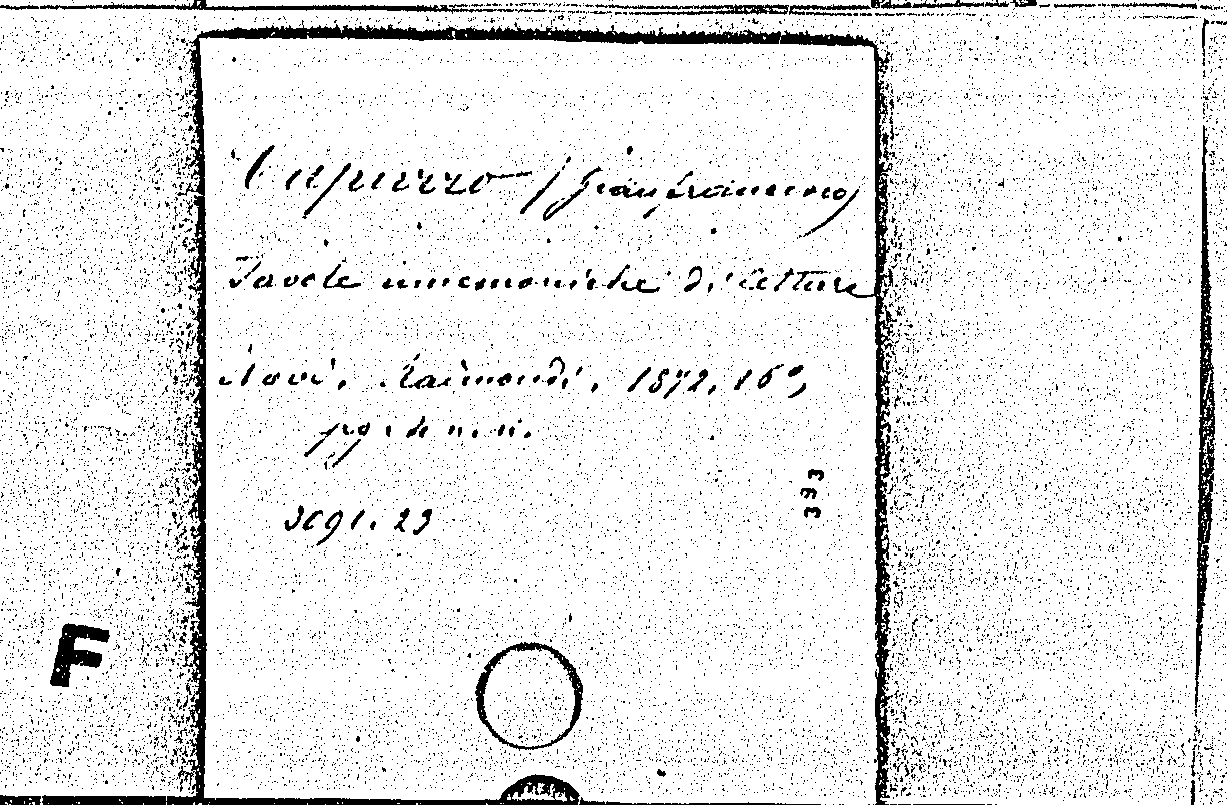 Capurro (Gianfrancesco)
Tavole mnemoniche di letture
Novi, Raimondi, 1872, 16°,
pg. in n. n.
3091. 29
393
F